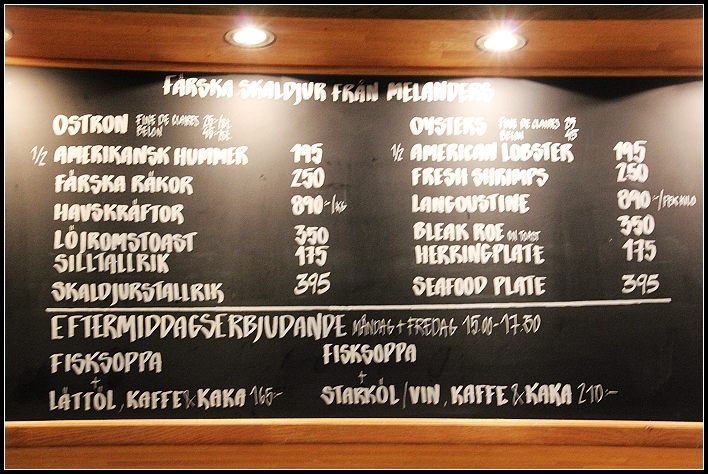 FÄRSKA SKALDJUR FRÅN MELANDERS
OSTRON FINE DE CLAIRES 25:-/ST
BELON 45:-/ST
1/2 AMERIKANSK HUMMER 195
FÄRSKA RÄKOR 250
HAVSKRÄFTOR 890:-/KG
LÖJROMSTOAST 350
SILLTALLRIK 175
SKALDJURSTALLRIK 395
OYSTERS FINE DE CLAIRES 25
BELON 45
1/2 AMERICAN LOBSTER 195
FRESH SHRIMPS 250
LANGOUSTINE 890:-/PER KILO
BLEAK ROE ON TOAST 350
HERRINGPLATE 175
SEAFOOD PLATE 395
EFTERMIDDAGSERBJUDANDE MÅNDAG + FREDAG 15.00-17.30
FISKSOPPA
+
LÄTTÖL, KAFFE & KAKA 165:-
FISKSOPPA
+
STARKÖL/VIN, KAFFE & KAKA 210:-